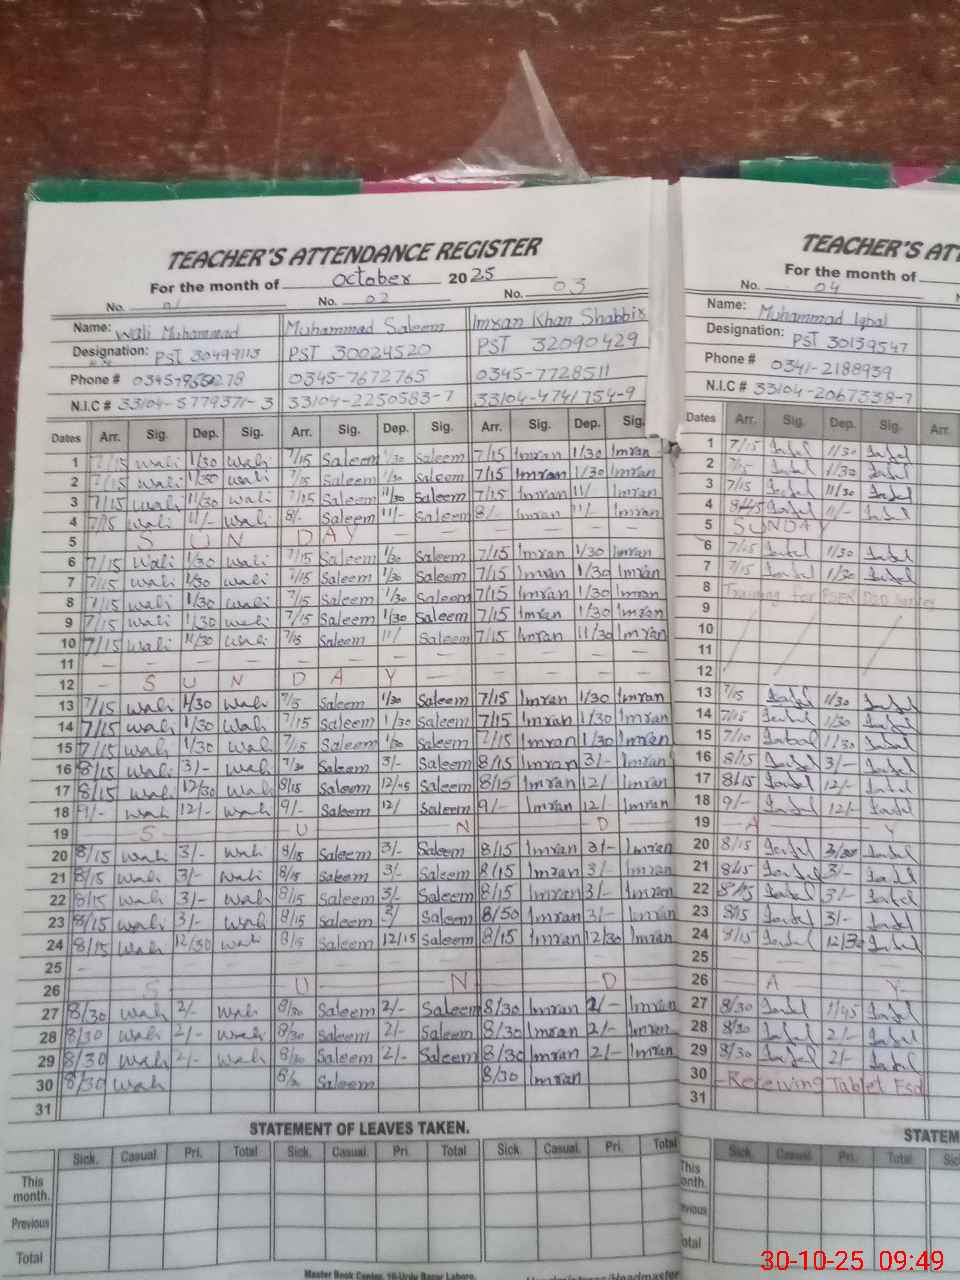 TEACHER'S ATTENDANCE REGISTER
For the month of October 2025
No. 01 No. 02 No. 03
Name: Wali Muhammad Muhammad Saleem Imran Khan Shabbir
Designation: PST 30499113 PST 30024520 PST 32090429
Phone # 0345-7672765 0345-7728511
N.I.C # 33104-5779371-3 33104-2250583-7 33104-4741754-9
Dates Arr. Sig. Dep. Sig. Arr. Sig. Dep. Sig. Arr. Sig. Dep. Sig.
1 7/15 Wali 1/30 Wali 7/15 Saleem 1/30 Saleem 7/15 Imran 1/30 Imran
2 7/15 Wali 1/30 Wali 7/15 Saleem 1/30 Saleem 7/15 Imran 1/30 Imran
3 7/15 Wali 11/30 Wali 7/15 Saleem 11/30 Saleem 7/15 Imran 11/ Imran
4 7/15 Wali 11/- Wali 8/- Saleem 11/- Saleem 8/- Imran 11/- Imran
5 - S U N D A Y - - - - -
6 7/15 Wali 1/30 Wali 7/15 Saleem 1/30 Saleem 7/15 Imran 1/30 Imran
7 7/15 Wali 1/30 Wali 7/15 Saleem 1/30 Saleem 7/15 Imran 1/30 Imran
8 7/15 Wali 1/30 Wali 7/15 Saleem 1/30 Saleem 7/15 Imran 1/30 Imran
9 7/15 Wali 1/30 Wali 7/15 Saleem 1/30 Saleem 7/15 Imran 1/30 Imran
10 7/15 Wali 11/30 Wali 7/15 Saleem 11/ Saleem 7/15 Imran 11/30 Imran
11 - - - - - - - - - - - -
12 - S U N D A Y - - - - -
13 7/15 Wali 1/30 Wali 7/15 Saleem 1/30 Saleem 7/15 Imran 1/30 Imran
14 7/15 Wali 1/30 Wali 7/15 Saleem 1/30 Saleem 7/15 Imran 1/30 Imran
15 7/15 Wali 1/30 Wali 7/15 Saleem 1/30 Saleem 7/15 Imran 1/30 Imran
16 8/15 Wali 3/- Wali 7/30 Saleem 3/- Saleem 8/15 Imran 3/- Imran
17 8/15 Wali 12/30 Wali 8/15 Saleem 12/45 Saleem 8/15 Imran 12/- Imran
18 9/- Wali 12/- Wali 9/- Saleem 12/ Saleem 9/- Imran 12/- Imran
19 S U N D
20 8/15 Wali 3/- Wali 8/15 Saleem 3/- Saleem 8/15 Imran 3/- Imran
21 8/15 Wali 3/- Wali 8/15 Saleem 3/- Saleem 8/15 Imran 3/- Imran
22 8/15 Wali 3/- Wali 8/15 Saleem 3/- Saleem 8/15 Imran 3/- Imran
23 8/15 Wali 3/- Wali 8/15 Saleem 3/ Saleem 8/50 Imran 3/- Imran
24 8/15 Wali 12/30 Wali 8/15 Saleem 12/15 Saleem 8/15 Imran 12/30 Imran
25 - - - - - - - - - - - -
26 S U N D
27 8/30 Wali 2/- Wali 8/30 Saleem 2/- Saleem 8/30 Imran 2/- Imran
28 8/30 Wali 2/- Wali 8/30 Saleem 2/- Saleem 8/30 Imran 2/- Imran
29 8/30 Wali 2/- Wali 8/30 Saleem 2/- Saleem 8/30 Imran 2/- Imran
30 8/30 Wali Saleem 8/30 Imran
31
STATEMENT OF LEAVES TAKEN.
Sick. Casual. Pri. Total Sick. Casual. Pri. Total Sick. Casual. Pri. Total
This month.
Previous
Total
Master Book Center, 16-Urdu Bazar Lahore. Headmistress/Headmaster
TEACHER'S AT
For the month of
No. 04
Name: Muhammad Iqbal
Designation: PST 30139547
Phone # 0341-2188939
N.I.C # 33104-2067338-7
Dates Arr. Sig. Dep. Sig. Arr.
1 7/15 Iqbal 11/30 Iqbal
2 7/15 Iqbal 1/30 Iqbal
3 7/15 Iqbal 11/30 Iqbal
4 8/45 Iqbal 11/- Iqbal
5 SUNDAY
6 7/15 Iqbal 1/30 Iqbal
7 7/15 Iqbal 1/30 Iqbal
8 Training for
9
10
11
12
13 7/15 Iqbal 1/30 Iqbal
14 7/15 Iqbal 1/30 Iqbal
15 7/10 Iqbal 1/30 Iqbal
16 8/15 Iqbal 3/- Iqbal
17 8/15 Iqbal 12/- Iqbal
18 9/- Iqbal 12/- Iqbal
19 A Y
20 8/15 Iqbal Iqbal
21 8/45 Iqbal 3/- Iqbal
22 Iqbal 3/- Iqbal
23 8/15 Iqbal 3/- Iqbal
24 8/15 Iqbal 12/30 Iqbal
25 - - - -
26 A Y
27 8/30 Iqbal 1/45 Iqbal
28 8/30 Iqbal 2/- Iqbal
29 8/30 Iqbal 2/- Iqbal
30 -Receiving Tablet Fsd
31
STATEM
Sick. Casual. Pri. Total Sic
This
onth.
evious
otal
30-10-25 09:49